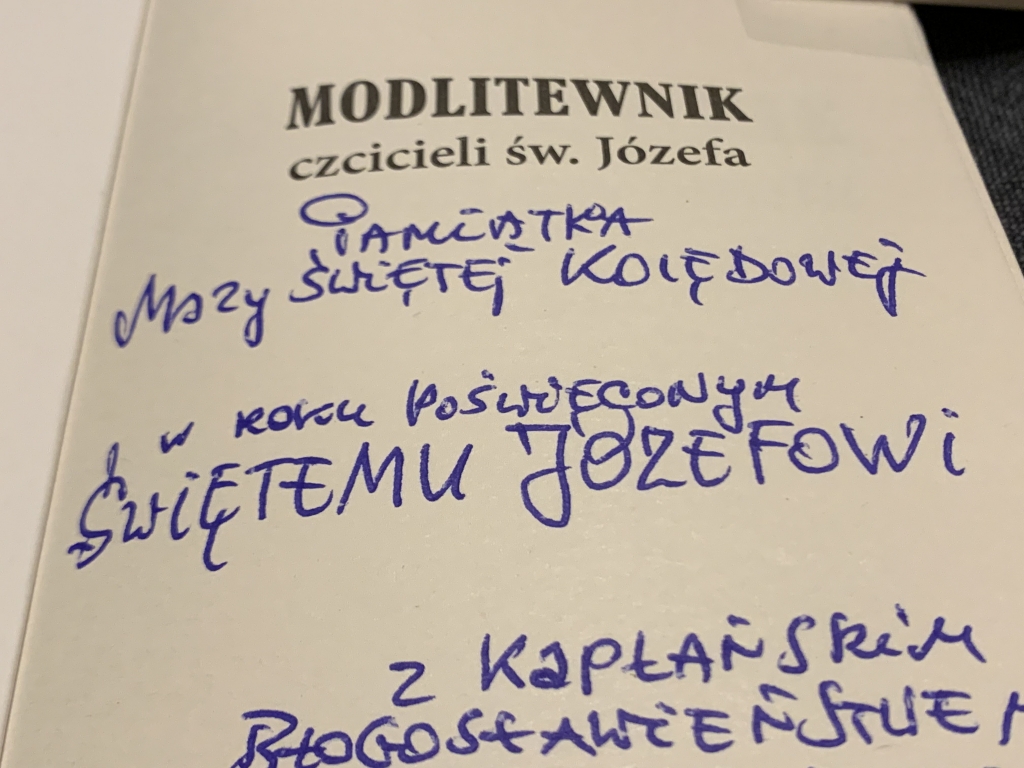 MODLITEWNIK
czcicieli św. Józefa
PAMIĄTKA
Mszy ŚWIĘTEJ KOLĘDOWEJ
w ROKU POŚWIĘCONYM
ŚWIĘTEMU JÓZEFOWI
Z KAPŁAŃSKIM
BŁOGOSŁAWIEŃSTWEM